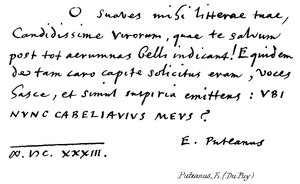 O suaves mihi litterae tuae,
Candidissime virorum, quae te salvum
post tot aerumnas belli indicant! Equidem
de tam caro capite solicitus eram, voces
Sasce, et simul suspiria emittens: VBI
NVNC CABELIAVIVS MEVS?
E. Puteanus
XXXIII.
Puteanus, E. (Du Puy)